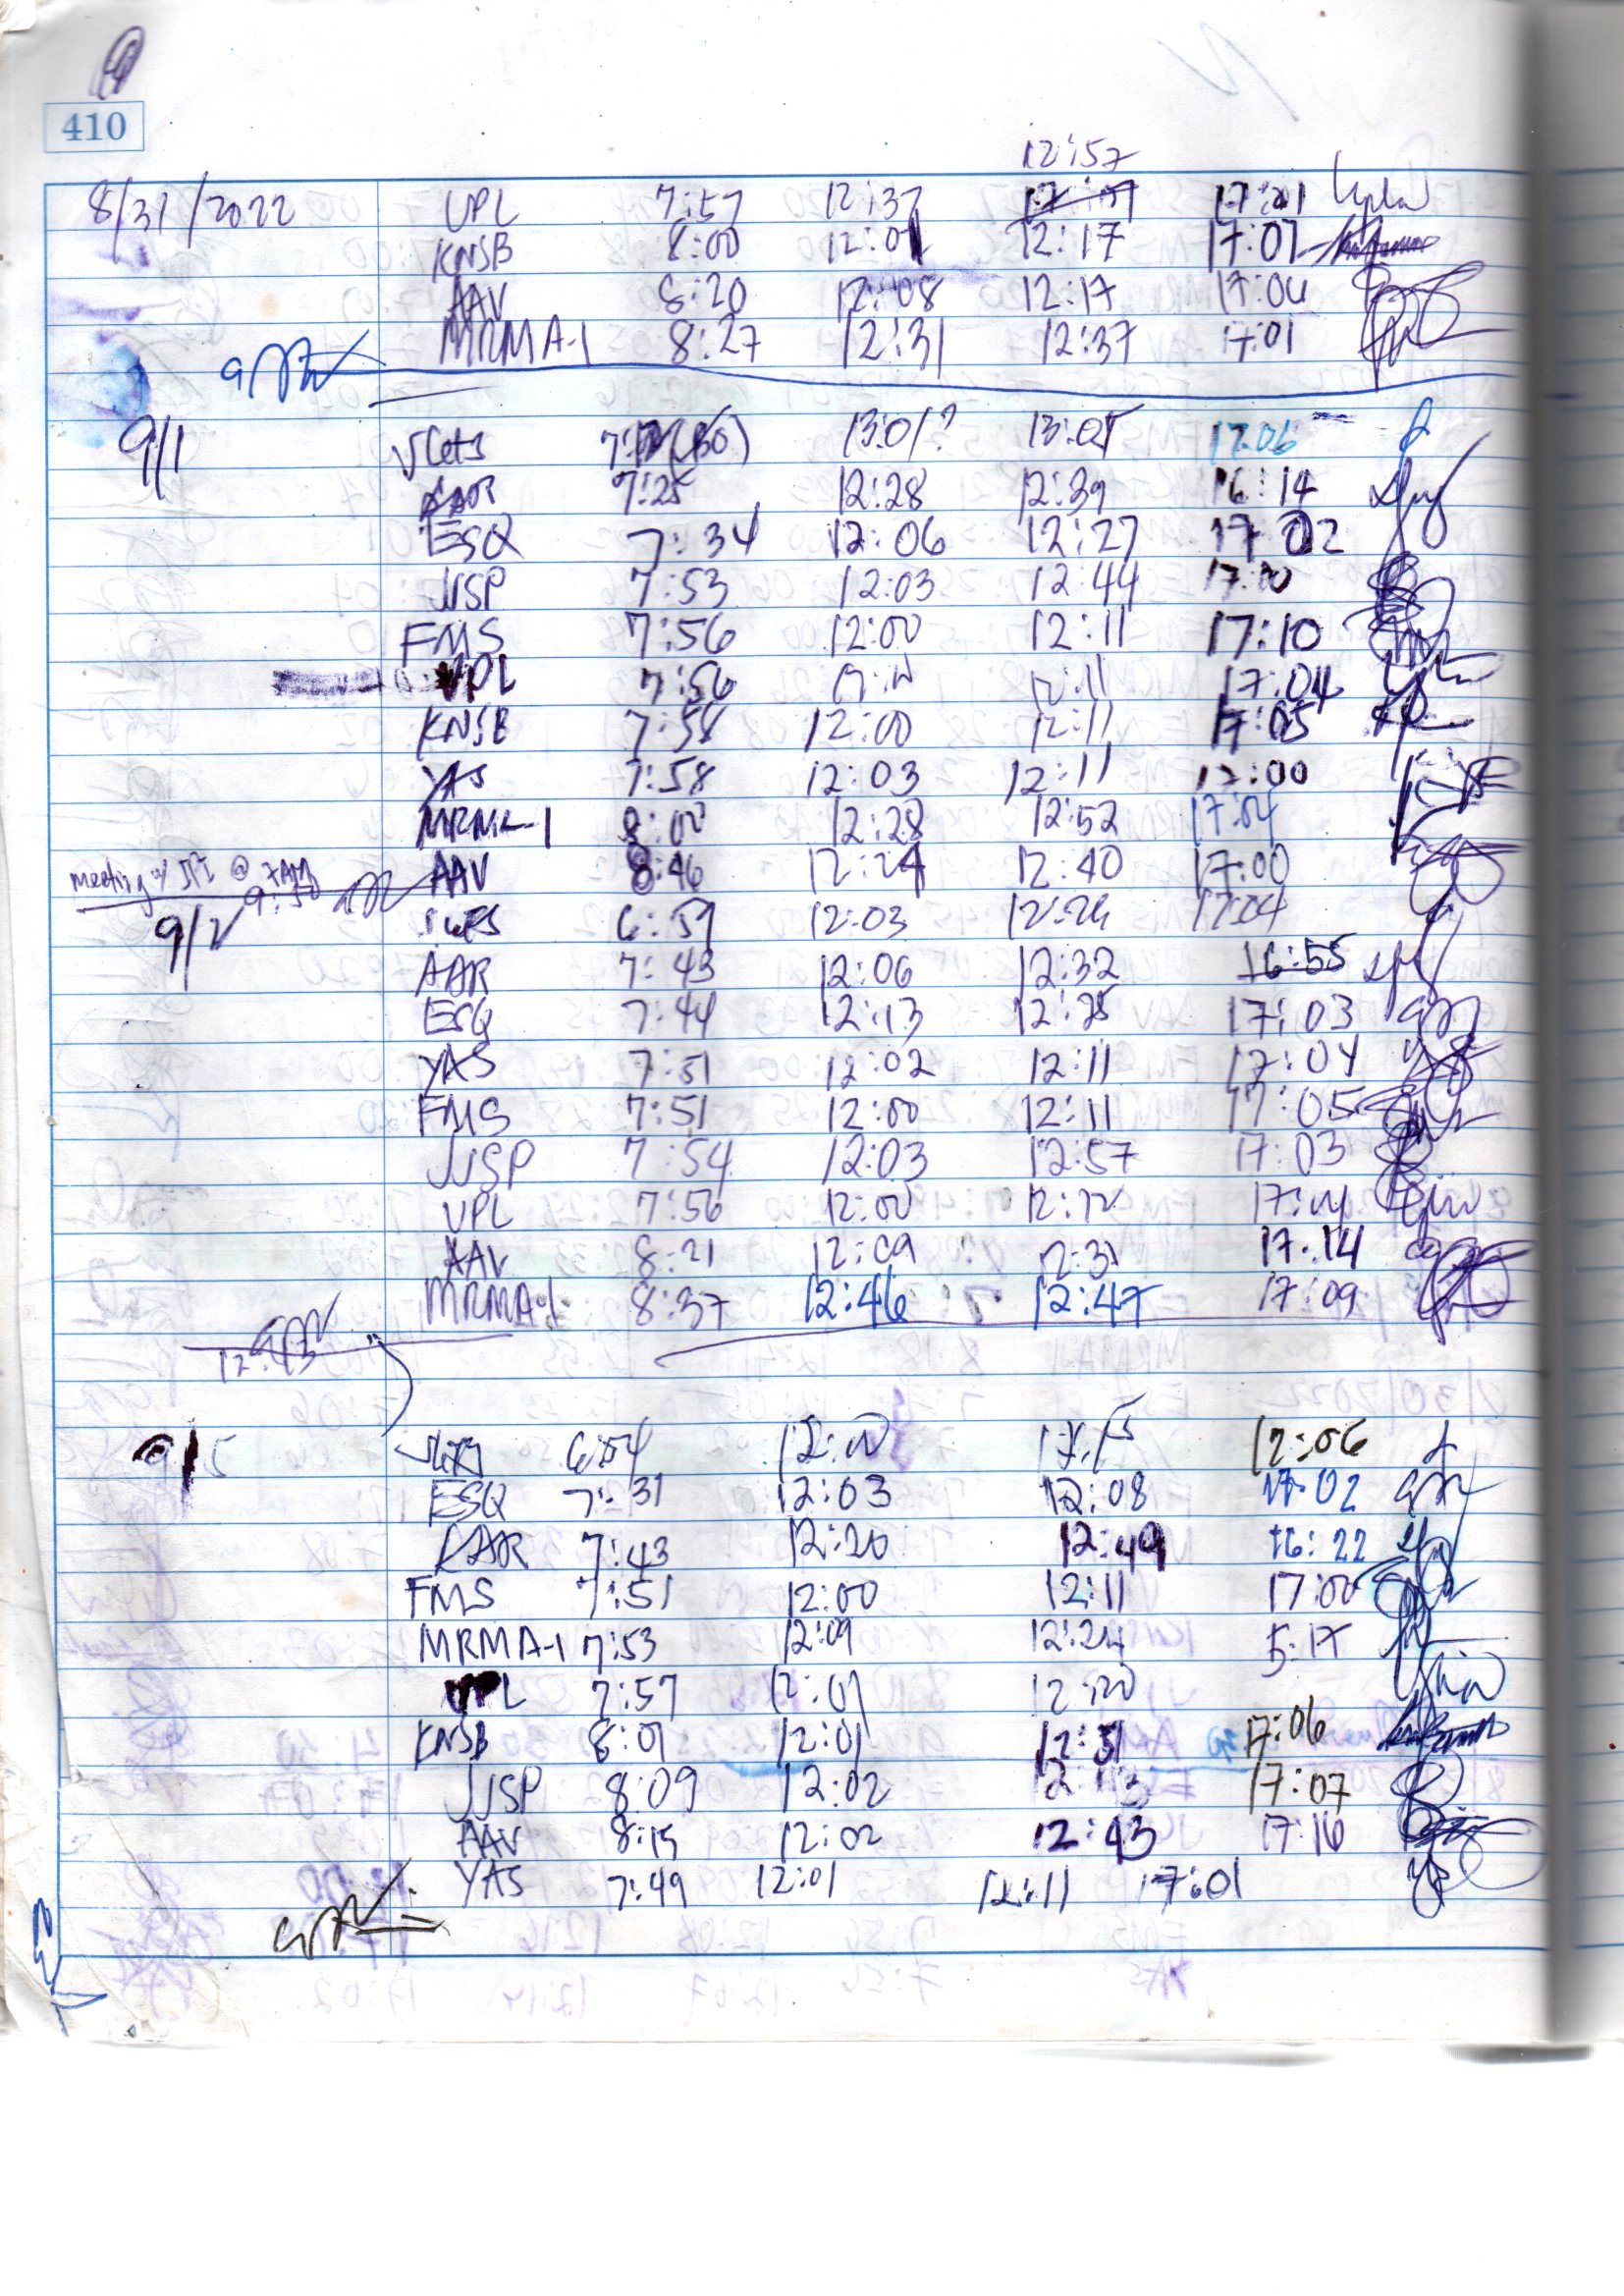 410
12:57
8/31/2022 UPL 7:57 12:37 17:01
KNSB 8:00 12:01 12:17 17:07
AAV 8:20 12:08 12:17 17:04
MRMA-1 8:27 12:31 12:37 17:01
9/1 13:01? 13:05 17:06
AAR 7:25 12:28 12:39 16:14
ESQ 7:34 12:06 12:27 17:02
JJSP 7:53 12:03 12:44 17:00
FMS 7:56 12:00 12:11 17:10
UPL 7:56 12:11 17:04
KNSB 7:58 12:00 12:11 17:05
YAS 7:58 12:03 12:11 17:00
MRMA-1 8:00 12:28 12:52 17:04
meeting w/ @ 7AM AAV 8:46 12:24 12:40 17:00
9:50
9/2 6:59 12:03 12:26 17:04
AAR 7:43 12:06 12:32 16:55
ESQ 7:44 12:13 12:25 17:03
YAS 7:51 12:02 12:11 17:04
FMS 7:51 12:00 12:11 17:05
JJSP 7:54 12:03 12:57 17:03
UPL 7:56 12:00 12:12 17:01
AAV 8:21 12:09 12:31 17:14
MRMA-1 8:37 12:46 12:47 17:09
12:43
9/5 6:54 12:00 17:06
ESQ 7:31 12:03 12:08 17:02
AAR 7:43 12:20 12:49 16:22
FMS 7:51 12:00 12:11 17:00
MRMA-1 7:53 12:09 12:24 5:17
UPL 7:57 12:01 12:20
KNSB 8:01 12:01 12:31 17:06
JJSP 8:09 12:02 12:13 17:07
AAV 8:15 12:02 12:43 17:16
YAS 7:49 12:01 12:11 17:01